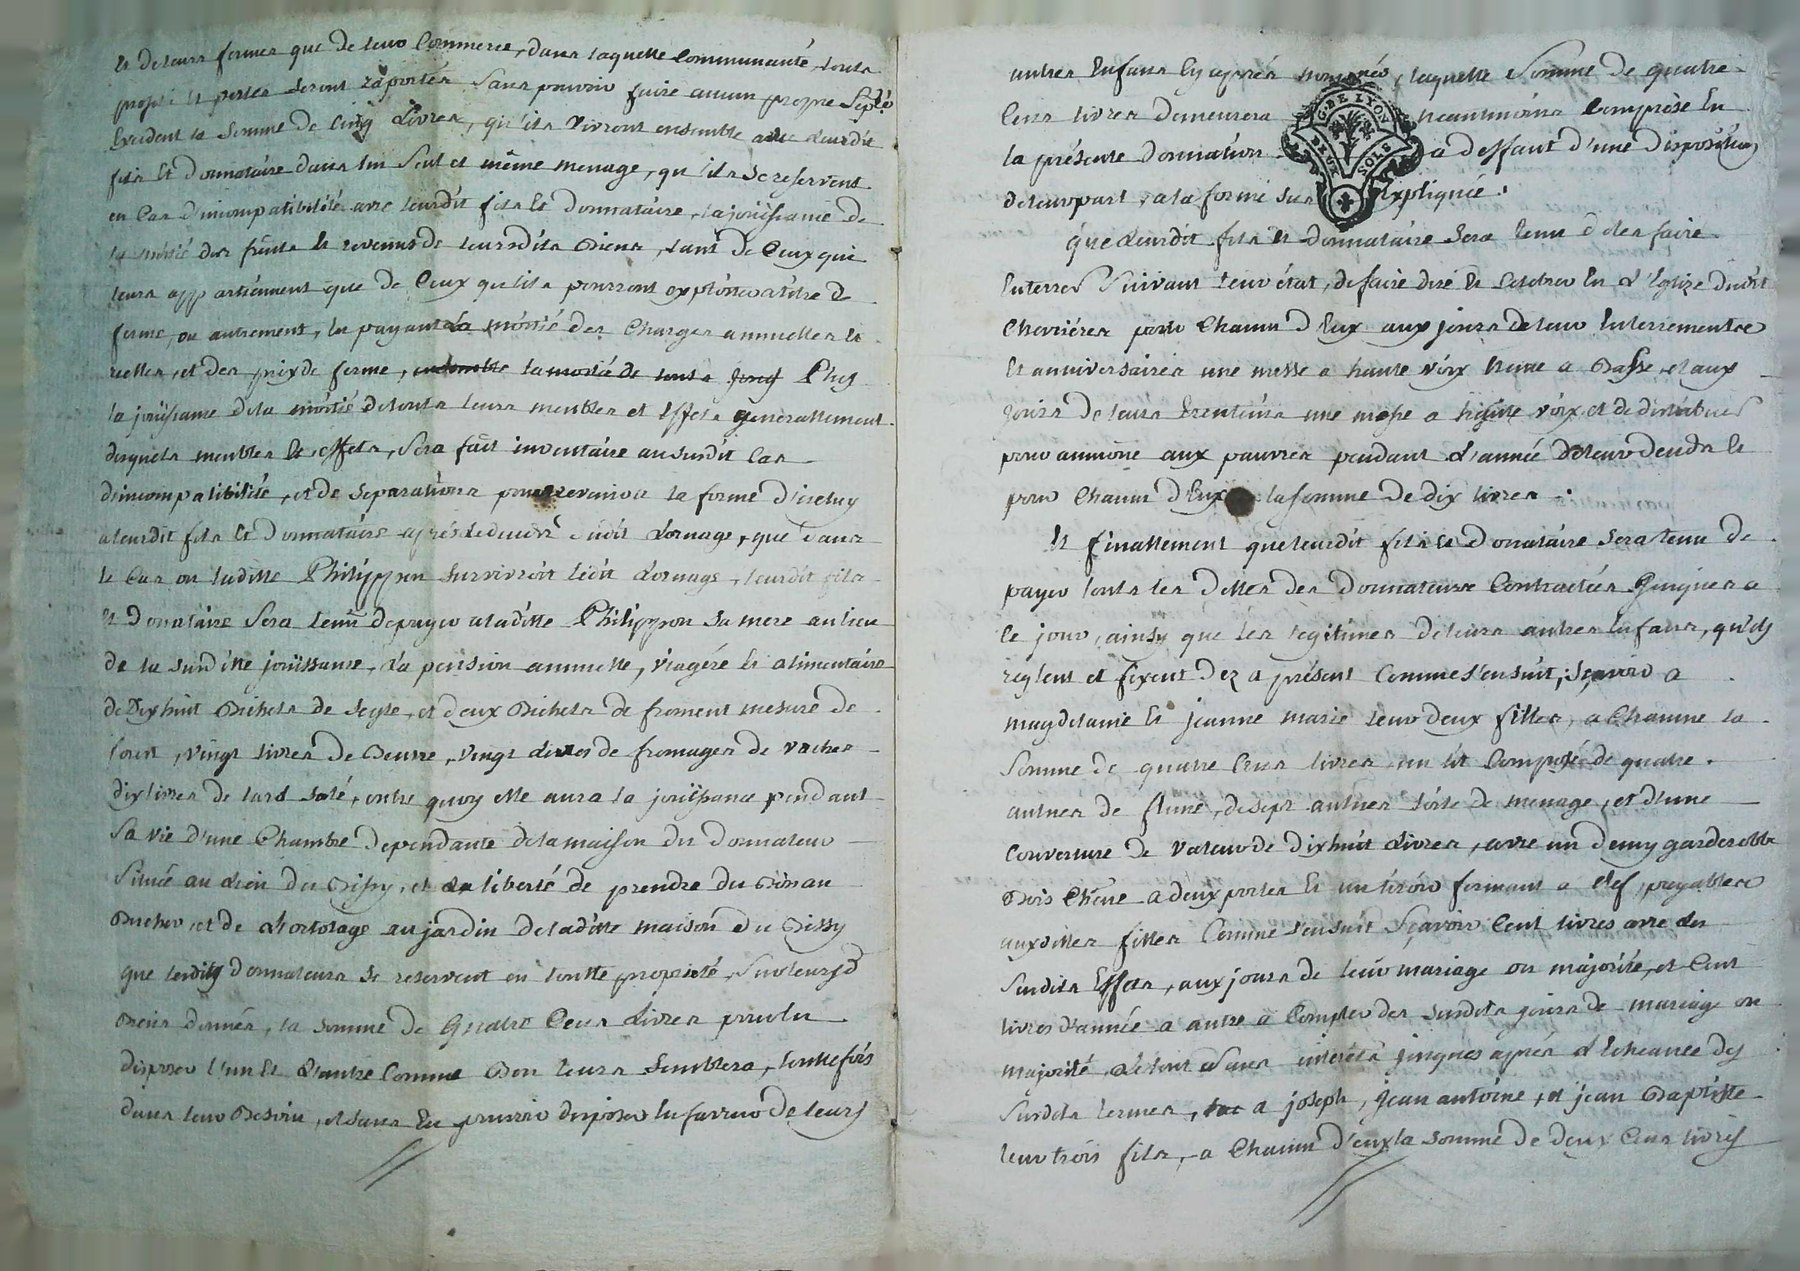 et de leurs fermes que de leur Commerce, dans laquelle Communauté, touts
profits et pertes seront raportés sans pouvoir faire aucun propre
Excédent la somme de Cinq Livres, qu'ils vivront ensemble avec leurdit
fils et Donnataire dans un seul et même menage, qu'ils se reservent
en Cas d'incompatibilité avec leurdit fils et Donnataire, la joüissance de
la moitié des fruits et revenus de leursdits Biens, tant de Ceux qui
leurs appartiennent que de Ceux qu'ils pourront exploiter a titre de
ferme, ou autrement, en payant la moitié des Charges annuelles et
reelles, et des prix de ferme, la moitié de touts Plus
la joüissance de la moitié de touts leurs meubles et Effets generallement
desquels meubles et effets, sera fait inventaire au susdit Cas
d'incompatibilité, et de separation pour revenir a la forme d'iceluy
a leurdit fils et Donnataire après le deceds dudit Lornage, que dans
le Cas ou laditte Philippon survivroit ledit Lornage, leurdit fils
et Donataire sera tenu de payer a laditte Philippon sa mere au lieu
de la susditte joüissance, la pension annuelle, viagére et alimentaire
de Dixhuit Bichets de segle, et deux Bichets de froment mesure de
forest, vingt livres de Beurre, vingt Livres de fromages de vaches
dix livres de lard salé, outre quoy elle aura la joüissance pendant
sa vie d'une Chambre dependante de la maison du Donnateur
située au Lieu du Bissy, et la liberté de prendre du Bois au
Bucher, et de L'ortolage au jardin de laditte maison du Bissy
que lesdits Donnateurs se reservent en toutte proprieté, sur leursd
Biens donnés, la somme de Quatre Cens Livres pour en
disposer l'un et L'autre Comme Bon leurs semblera, touttefois
dans leur Besoin, et sans En pouvoir disposer En faveur de leurs
autres Enfans Cy après nommés, laquelle Somme de quatre
Cens livres demeurera neantmoins Comprise En
la présente Donnation a deffaut d'une Disposition
de leur part, a la forme sus Expliquée.
G. DE LYON
DEUX SOLS
que Leurdit fils et Donnataire sera tenu de les faire
Enterrer suivant leur état, de faire dire et Celebrer En L'Eglize dudit
Chevriéres pour Chacun d'Eux aux jours de leur Enterrement
et anniversaires une messe a haute voix une a Basse, et aux
jours de leurs trentains une messe a haute voix, et de distribuer
pour aumône aux pauvres pendant L'année de leur deceds et
pour Chacun d'Eux la somme de dix livres.
Et finallement que leurdit fils et Donataire sera tenu de
payer touts les dettes des Donnateurs Contractées jusques a
Ce jour, ainsy que les legitimes de leurs autres Enfans, qu'ils
reglent et fixent dez a présent Comme s'ensuit; sçavoir a
magdelaine et jeanne marie leur deux filles, a Chacune la
somme de quatre Cens livres un lit Composé de quatre
aulnes de de sept aulnes toile de menage, et d'une
Couverture de valeur de dixhuit Livres, avec un demy garderobbe
Bois Chêne a deux portes et un tiroir fermant a clef, payables
auxdittes filles Comme s'ensuit sçavoir Cent livres avec les
susdits Effets, aux jours de leur mariage ou majorité, et Cent
livres d'année a autre a Compter des susdits jours de mariage ou
majorité, Le tout sans interêts jusques après L'echeance des
susdits termes, a joseph, jean antoine, et jean Baptiste
leur trois fils, a Chacun d'eux la somme de deux Cens livres